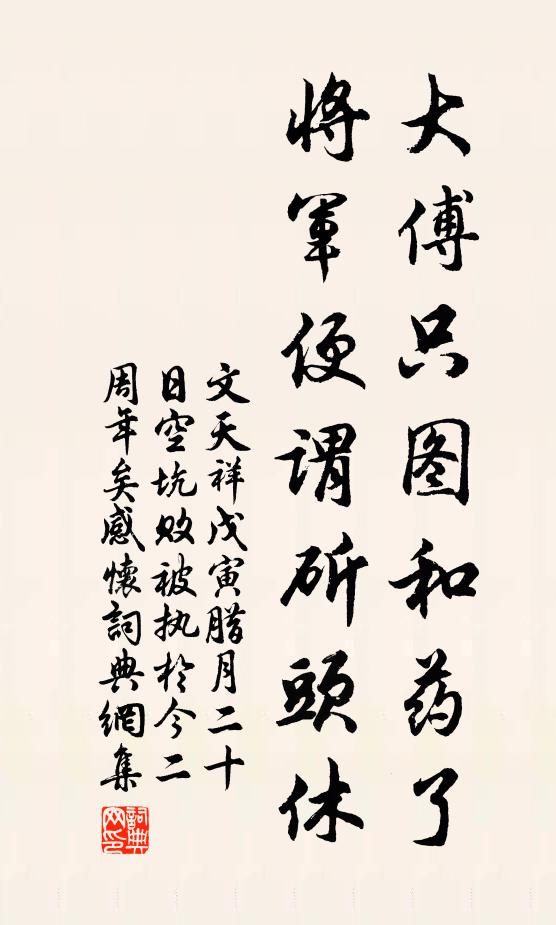 大傅只图和药了
将军便谓斫头休
文天祥戊寅腊月二十
日空坑败被执于今二
周年矣感怀詞典網集
詞典
网印